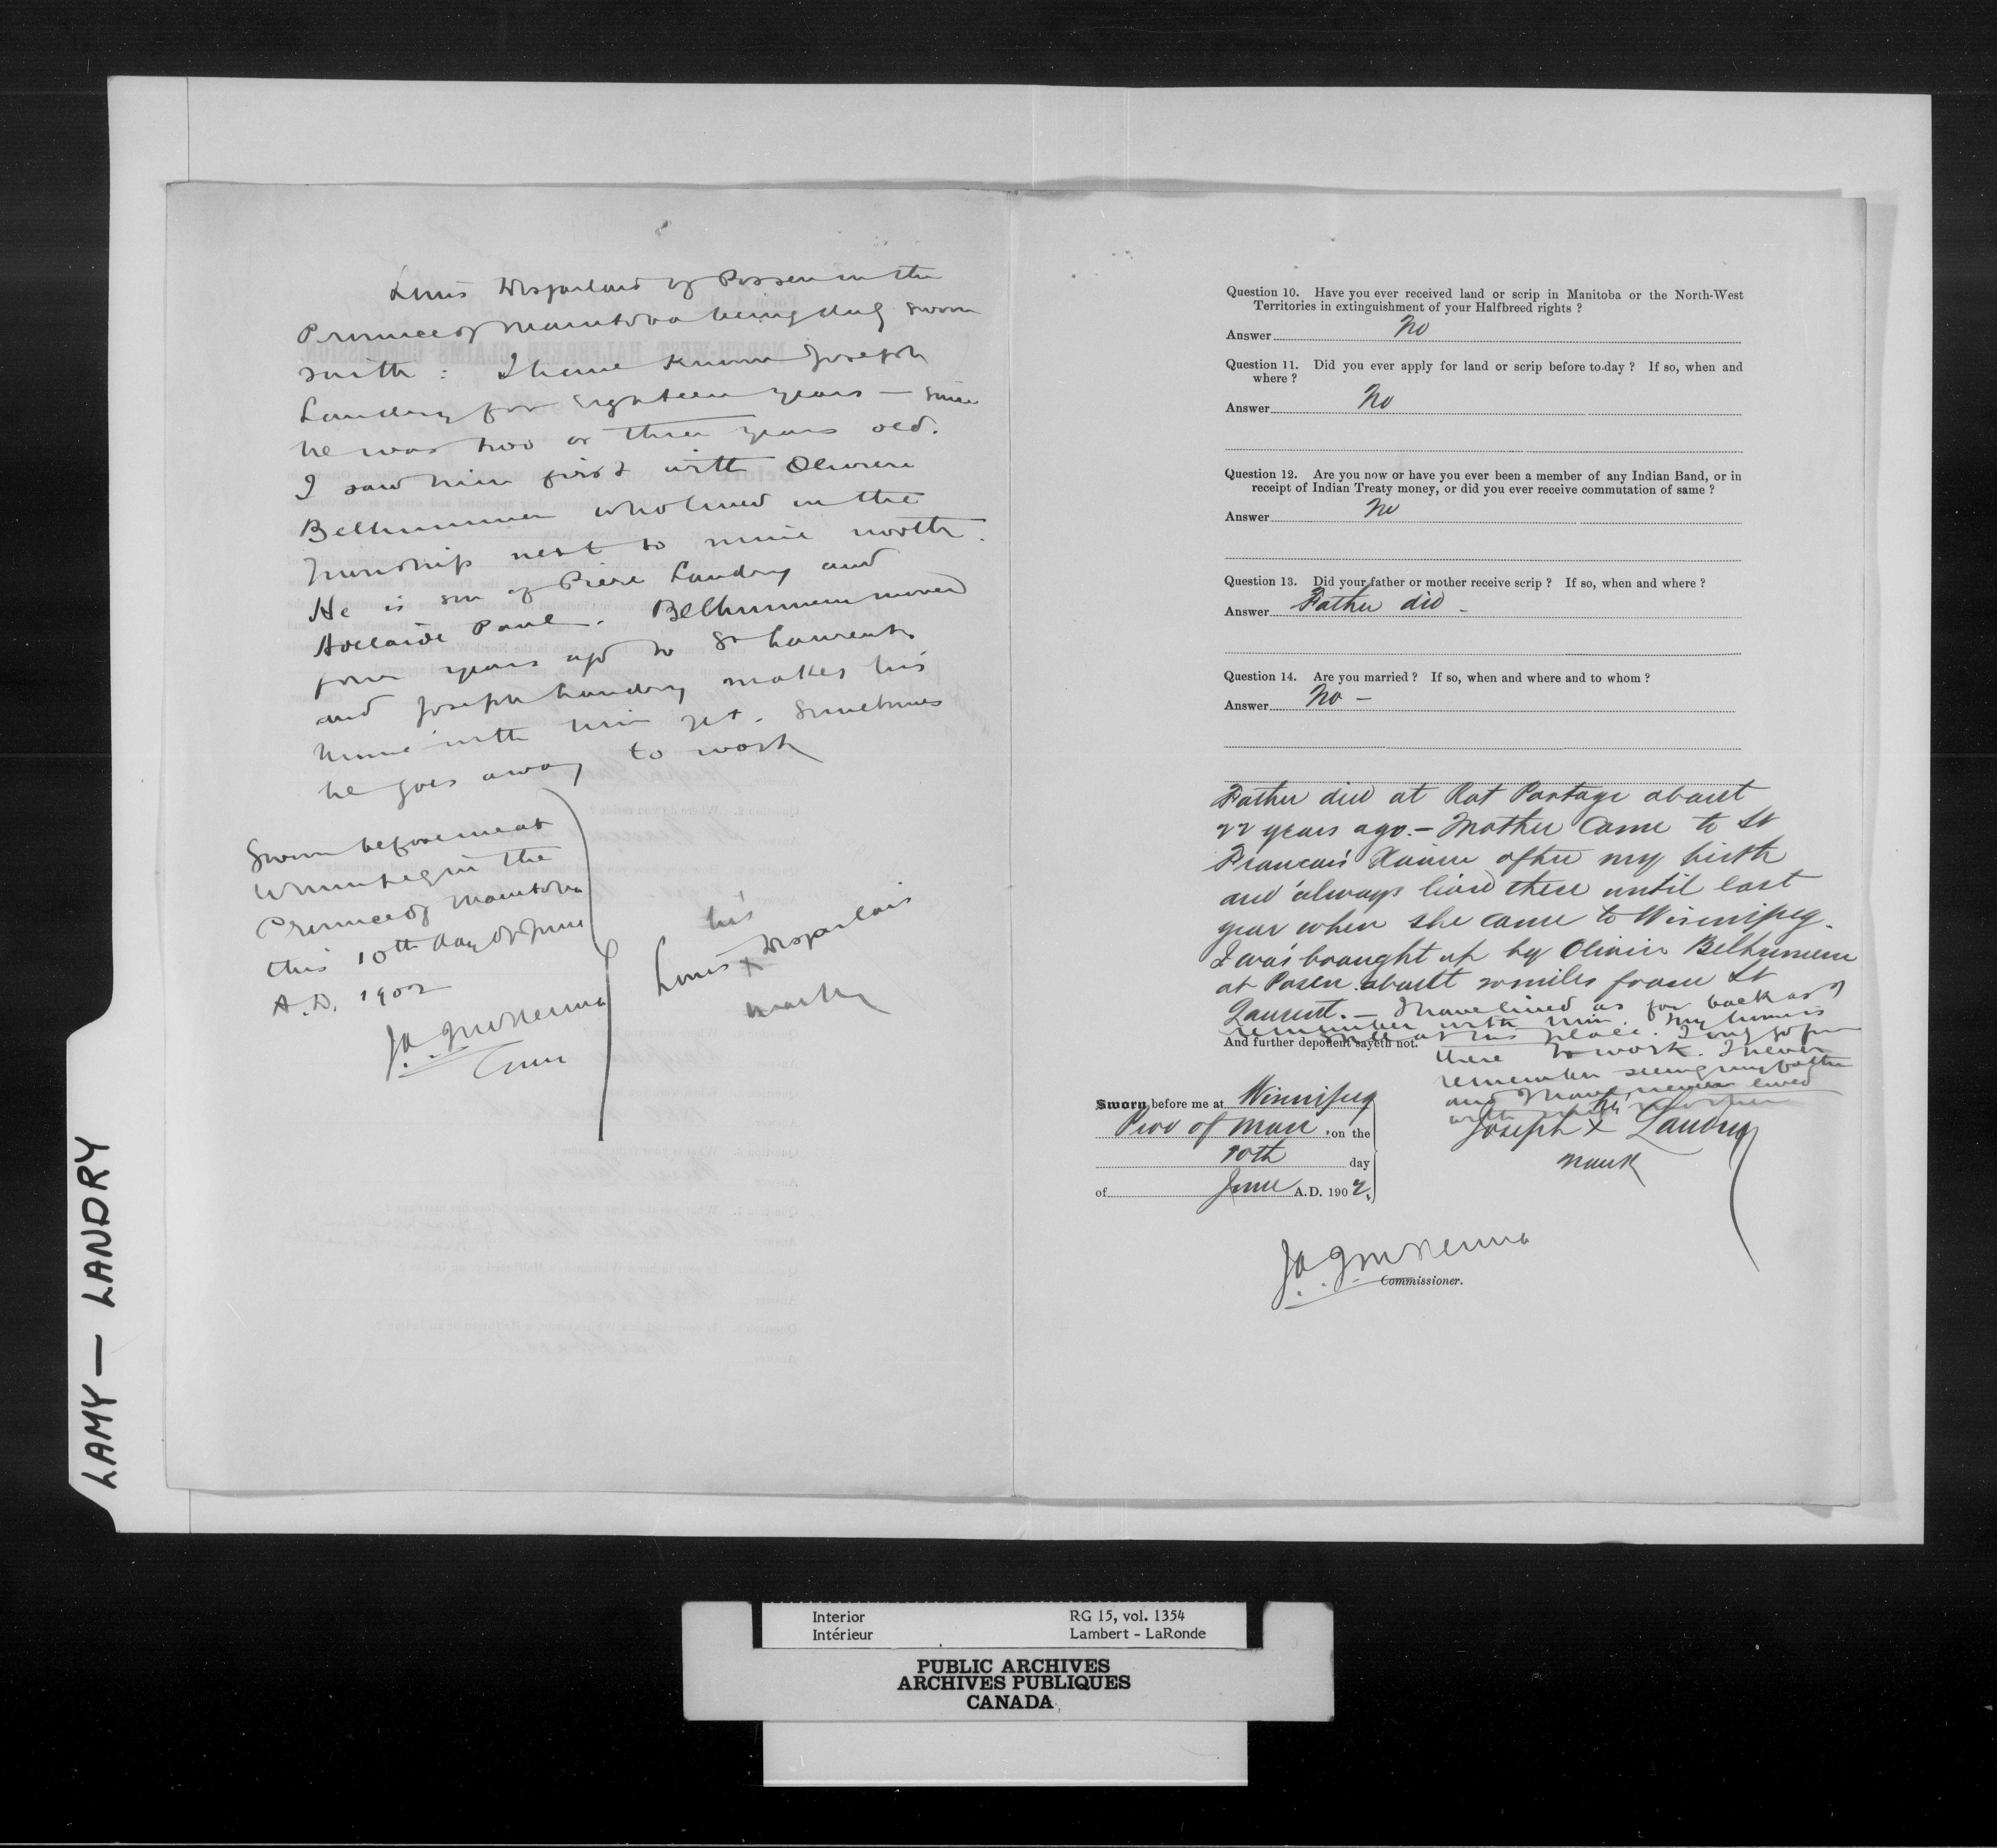 Louis Desjarlais of Possen in the
Province of Manitoba being duly sworn
saith : I have known Joseph
Landry for eighteen years — since
he was two or three years old.
I saw him first with Olivier
Belhumeur who lived in the
Township next to mine north.
He is son of Piere Landry and
Adelaide Paul. Belhumeur moved
four years ago to St Laurent
and Joseph Landry makes his
home with him yet. Sometimes
he goes away to work
Sworn before me at
Winnipeg in the
Province of Manitoba
this 10th day of June
A.D. 1902
J A J McKenna
Comr
his
Louis X Desjarlais
mark
Question 10. Have you ever received land or scrip in Manitoba or the North-West
Territories in extinguishment of your Halfbreed rights ?
Answer No
Question 11. Did you ever apply for land or scrip before to-day ? If so, when and
where ?
Answer No
Question 12. Are you now or have you ever been a member of any Indian Band, or in
receipt of Indian Treaty money, or did you ever receive commutation of same ?
Answer No
Question 13. Did your father or mother receive scrip ? If so, when and where ?
Answer Father did -
Question 14. Are you married ? If so, when and where and to whom ?
Answer No -
Father died at Rat Portage about
22 years ago. - Mother came to St
Francois Xavier after my birth
and always lived there until last
year when she came to Winnipeg.
I was brought up by Olivier Belhumeur
at Posen about 20 miles from St
Laurent. - I have lived as far back as I
remember with him. My home is
still at his place. I only go from
And further deponent sayeth not.
there to work. I never
remember seeing my father
and I have never lived
with my mother
Sworn before me at Winnipeg
Prov of Man , on the
10th day
of June A.D. 1902.
his
Joseph X Landry
mark
J A J McKenna
Commissioner.
LAMY — LANDRY
Interior RG 15, vol. 1354
Intérieur Lambert - LaRonde
PUBLIC ARCHIVES
ARCHIVES PUBLIQUES
CANADA